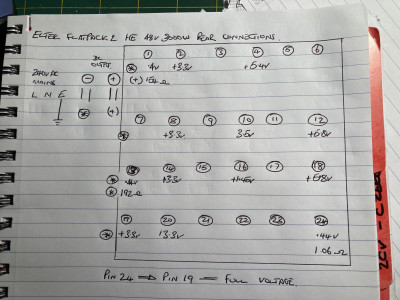 ELTEK FLATPACK 2 HE 48V 3000W REAR CONNECTIONS.
DC OUTPUT
① ② ③ ④ ⑤ ⑥
240V AC MAINS
- +
4V +3.3v +5.4v
(+) 154Ω
L N E
(*) (+)
⑦ ⑧ ⑨ ⑩ ⑪ ⑫
(*) +3.3v 3.5v +5.8v
⑬ ⑭ ⑮ ⑯ ⑰ ⑱
(*) 13.3v +5.8v
(*) 192Ω
⑲ ⑳ ㉑ ㉒ ㉓ ㉔
(*) +3.3v 13.3v .44v
1.06Ω
PIN 24 PIN 19 = FULL VOLTAGE.
2CV -